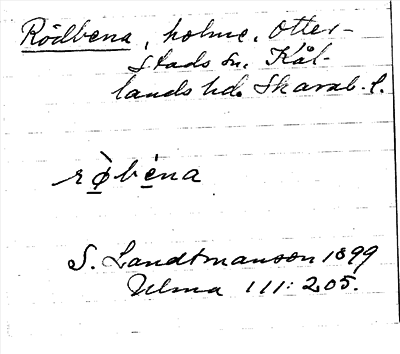 Rödbena, holme, Otter-
stads sn. Kål-
lands hd. Skarab. l.
rø̀béna
S. Landtmanson 1899
Ulma 111: 205.